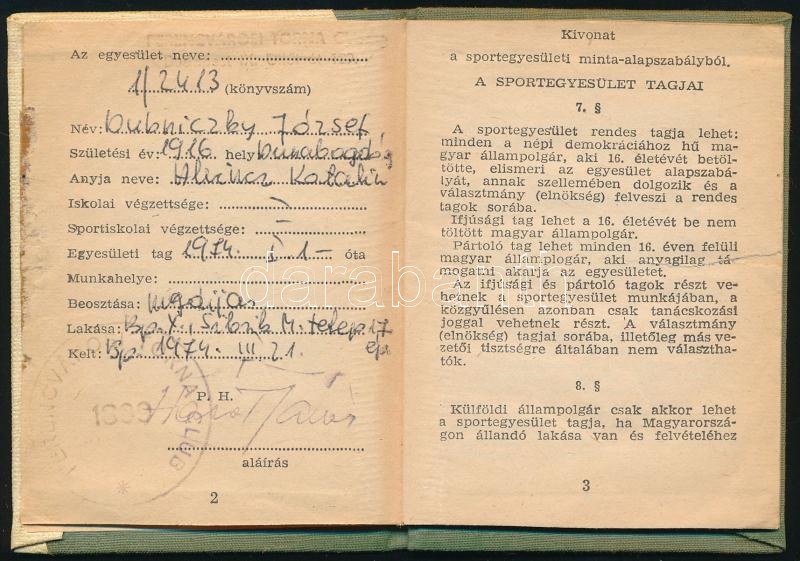 Az egyesület neve:
1/2413 (könyvszám)
Név: Dubniczky József
Születési év: 1916 hely Dunabogdány
Anyja neve: Katalin
Iskolai végzettsége: —
Sportiskolai végzettsége: —
Egyesületi tag 1974. I. 1– óta
Munkahelye:
Beosztása: nyugdíjas
Lakása: Bp. X., M. telep 17
ép.
Kelt: Bp. 1974. III. 21.
P. H.
1899
aláírás
2
Kivonat
a sportegyesületi minta-alapszabályból.
A SPORTEGYESÜLET TAGJAI
7. §
A sportegyesület rendes tagja lehet:
minden a népi demokráciához hű ma-
gyar állampolgár, aki 16. életévét betöl-
tötte, elismeri az egyesület alapszabá-
lyát, annak szellemében dolgozik és a
választmány (elnökség) felveszi a rendes
tagok sorába.
Ifjúsági tag lehet a 16. életévét be nem
töltött magyar állampolgár.
Pártoló tag lehet minden 16. éven felüli
magyar állampolgár, aki anyagilag tá-
mogatni akarja az egyesületet.
Az ifjúsági és pártoló tagok részt ve-
hetnek a sportegyesület munkájában, a
közgyűlésen azonban csak tanácskozási
joggal vehetnek részt. A választmány
(elnökség) tagjai sorába, illetőleg más ve-
zetői tisztségre általában nem választha-
tók.
8. §
Külföldi állampolgár csak akkor lehet
a sportegyesület tagja, ha Magyarorszá-
gon állandó lakása van és felvételéhez
3
darabanth.com